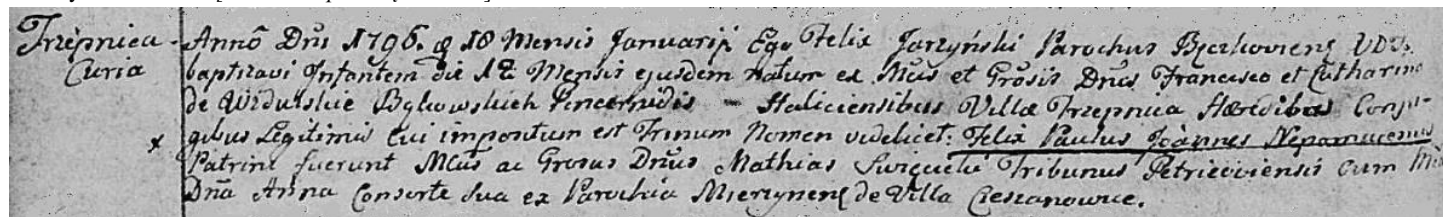 Trzepnica Curia
Annô Dni 1796. d 18 Mensis Januarij Ego Felix Jarzyński Parochus Bęczkoviens
baptizavi Infantem die 12 Mensis ejusdem natum ex Mcis et Grosis Dnis Francisco et Catharina
de Bykowskich Pincernidis - Haliciensibus Villæ Trzepnica Hæredibus Conju-
gibus Legitimis Cui impositum est Trinum Nomen videlicet: Felix Paulus Joannes Nepomucenus
Patrini fuerunt Mcus ac Grosus Dnus Mathias Tribunus Petricoviensis cum
Dna Anna Consorte sua ex Parochia de Villa Cieszanowice.